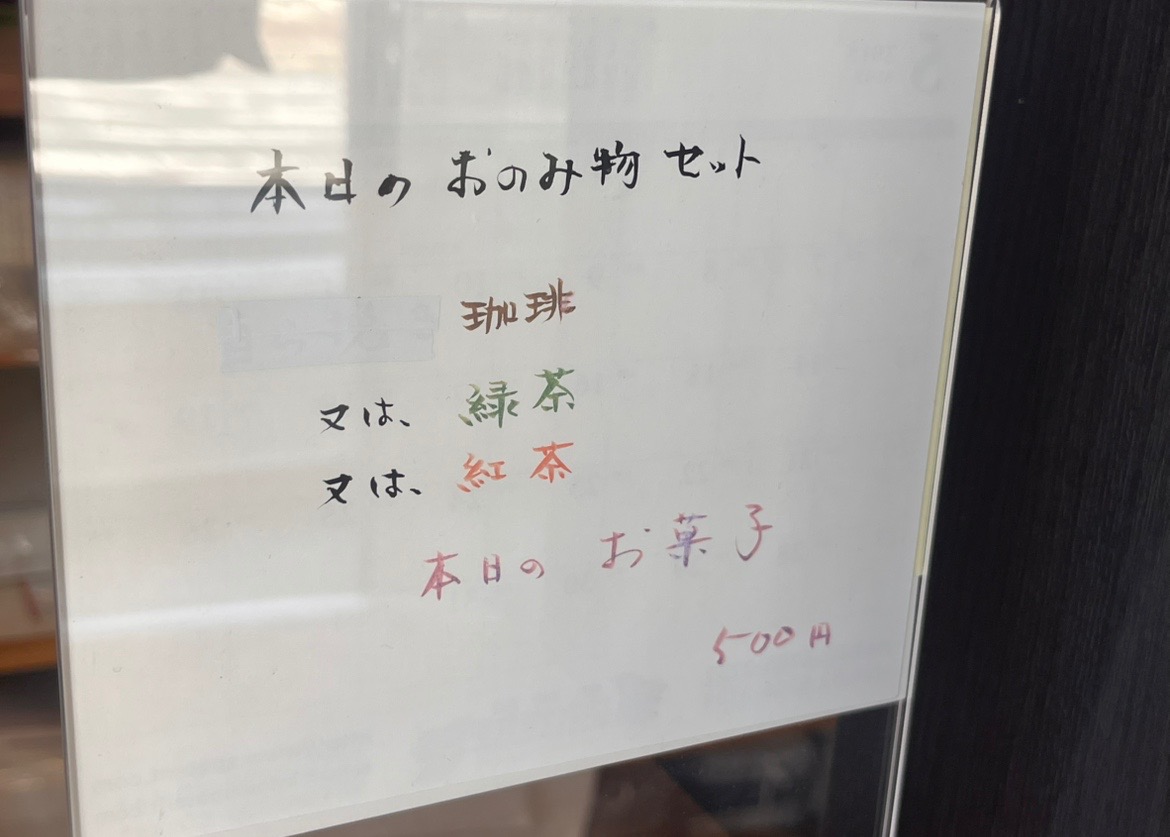 本日の おのみ物 セット
珈琲
又は、 緑茶
又は、 紅茶
本日の お菓子
500円